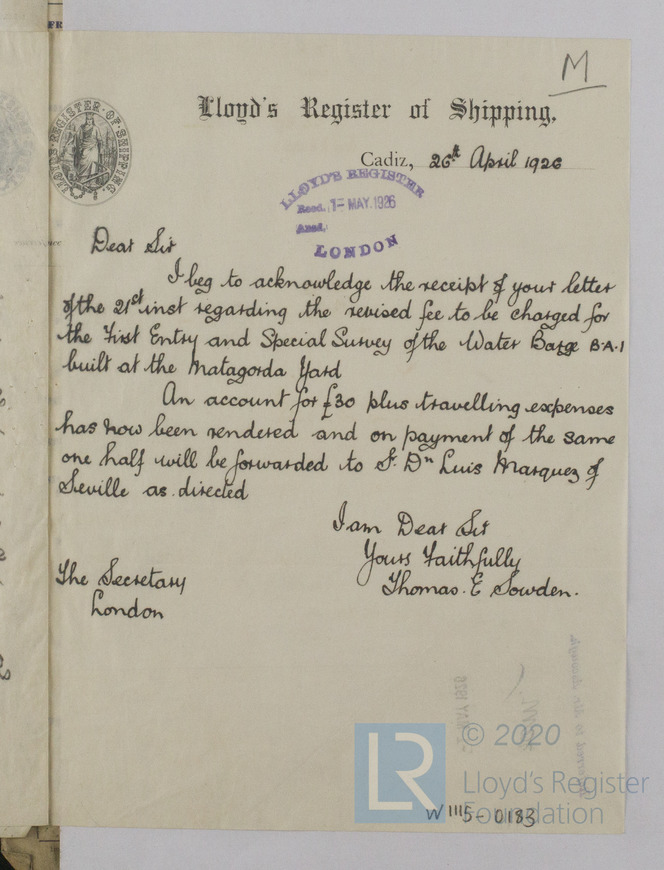 M
Lloyd's Register of Shipping,
LLOYD'S REGISTER OF SHIPPING.
Cadiz, 26th April 1926
LLOYD'S REGISTER
Recd. 1- MAY. 1926
Ansd.
LONDON
Dear Sir
I beg to acknowledge the receipt of your letter
of the 21st inst regarding the revised fee to be charged for
the First Entry and Special Survey of the Water Barge B.A.1
built at the Matagorda Yard
An account for £30 plus travelling expenses
has now been rendered and on payment of the same
one half will be forwarded to Sr. Dn Luis Marquez of
Seville as directed
I am Dear Sir
Yours Faithfully
Thomas. E Sowden.
The Secretary
London
MAY 1926
LR
© 2020
Lloyd's Register
Foundation
W1115-0183